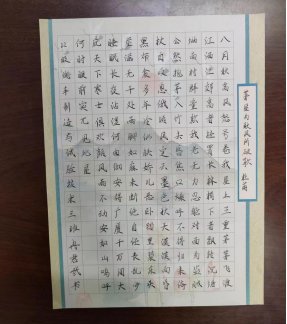 茅屋为秋风所破歌 杜甫
八月秋高风怒号卷我屋上三重茅茅飞渡
江洒江郊高者挂罥长林梢下者飘转沉塘
坳南村群童欺我老无力忍能对面为盗贼
公然抱茅入竹去唇焦口燥呼不得归来倚
杖自叹息俄顷风定云墨色秋天漠漠向昏
黑布衾多年冷似铁娇儿恶卧踏里裂床头
屋漏无干处雨脚如麻未断绝自经丧乱少
睡眠长夜沾湿何由彻安得广厦千万间大
庇天下寒士俱欢颜风雨不动安如山呜呼
何时眼前突兀见此屋